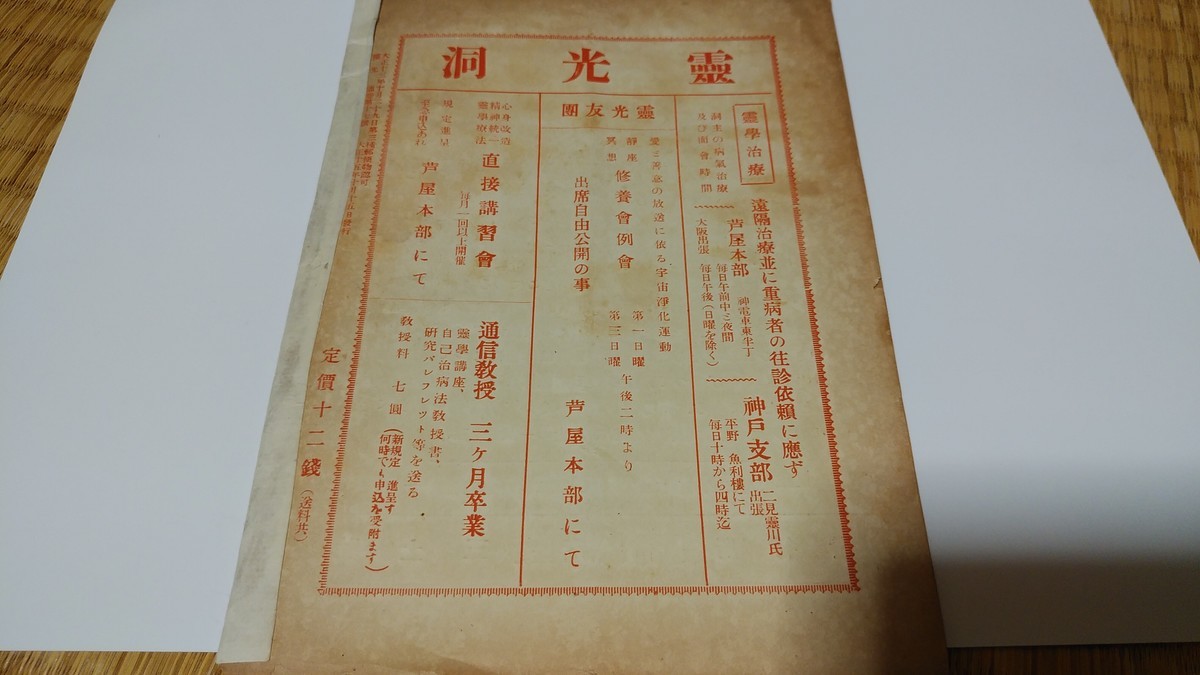 靈光洞
靈學治療
遠隔治療並に重病者の往診依賴に應ず
諸末の病氣治療
及び面會時間
芦屋本部
神電車東半丁
每日午前中と夜間
大阪出張
每日午後(日曜を除く)
神戶支部
二見靈川氏
出張
平野 魚利樓にて
每日十時から四時迄
靈光友團
愛と善意の放送に依る宇宙淨化運動
靜座
冥想
修養會例會
第一日曜
第三日曜
午後二時より
出席自由公開の事
芦屋本部にて
心身改造
精神統一
靈學療法
直接講習會
每月一回以上開催
規定進呈
芦屋本部にて
通信敎授 三ヶ月卒業
靈學講座、
自己治病法敎授書、
硏究パンフレット等を送る
敎授料 七圓
(新規定進呈す
何時でも申込を受附ます)
定價十二錢
(送料共)